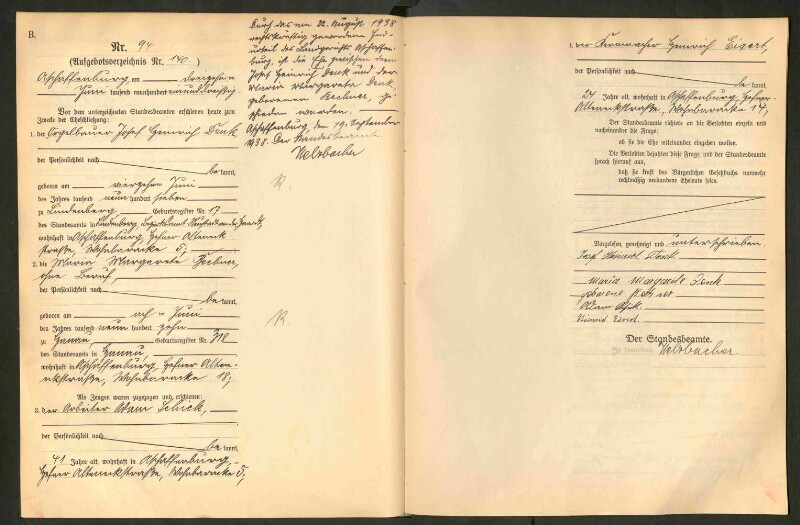 B.
Nr. 94
(Aufgebotsverzeichnis Nr. 140.)
Aschaffenburg, am dreizehn
Juni tausend neunhundert neununddreißig
Vor dem unterzeichneten Standesbeamten erschienen heute zum
Zwecke der Eheschließung:
1. der Orgelbauer Josef Heinrich Denk
der Persönlichkeit nach
be kannt,
geboren am vierzehn Juni
des Jahres tausend neun hundert sieben
zu Lindenberg, Geburtsregister Nr. 17
des Standesamts in Lindenberg, Bezirksamt Neustadt an der Haardt,
wohnhaft in Aschaffenburg, Hefner Alteneck
straße, Wohnbaracke 5,
2. die Maria Margareta Bechner,
ohne Beruf,
der Persönlichkeit nach
be kannt,
geboren am acht Juni
des Jahres tausend neun hundert zehn
zu Hanau, Geburtsregister Nr.
des Standesamts in Hanau,
wohnhaft in Aschaffenburg, Hefner Alten-
eckstraße, Wohnbaracke 18;
Als Zeugen waren zugezogen und erschienen:
3. der Arbeiter Adam Schick,
der Persönlichkeit nach
be kannt,
41 Jahre alt, wohnhaft in Aschaffenburg,
Hefner Alteneckstraße, Wohnbaracke 5,
Durch das am 22. August 1938
rechtskräftig gewordene
urteil des Landgerichts Aschaffen-
burg, ist die Ehe zwischen dem
Josef Heinrich Denk und der
Maria Margareta Denk,
geborenen Bechner, ge-
schieden worden.
Aschaffenburg, den 19. September
1938. Der Standesbeamte
Welzbacher
4. der Heinrich Eisert,
der Persönlichkeit nach
be kannt,
24 Jahre alt, wohnhaft in Aschaffenburg, Hefner-
Alteneckstraße, Wohnbaracke 14,
Der Standesbeamte richtete an die Verlobten einzeln und
nacheinander die Frage:
ob sie die Ehe miteinander eingehen wollen.
Die Verlobten bejahten diese Frage, und der Standesbeamte
sprach hierauf aus,
daß sie kraft des Bürgerlichen Gesetzbuchs nunmehr
rechtmäßig verbundene Eheleute seien.
Vorgelesen, genehmigt und unterschrieben.
Josef Heinrich Denk
Maria Margarete Denk
Adam Schick
Heinrich Eisert.
Der Standesbeamte.
Welzbacher